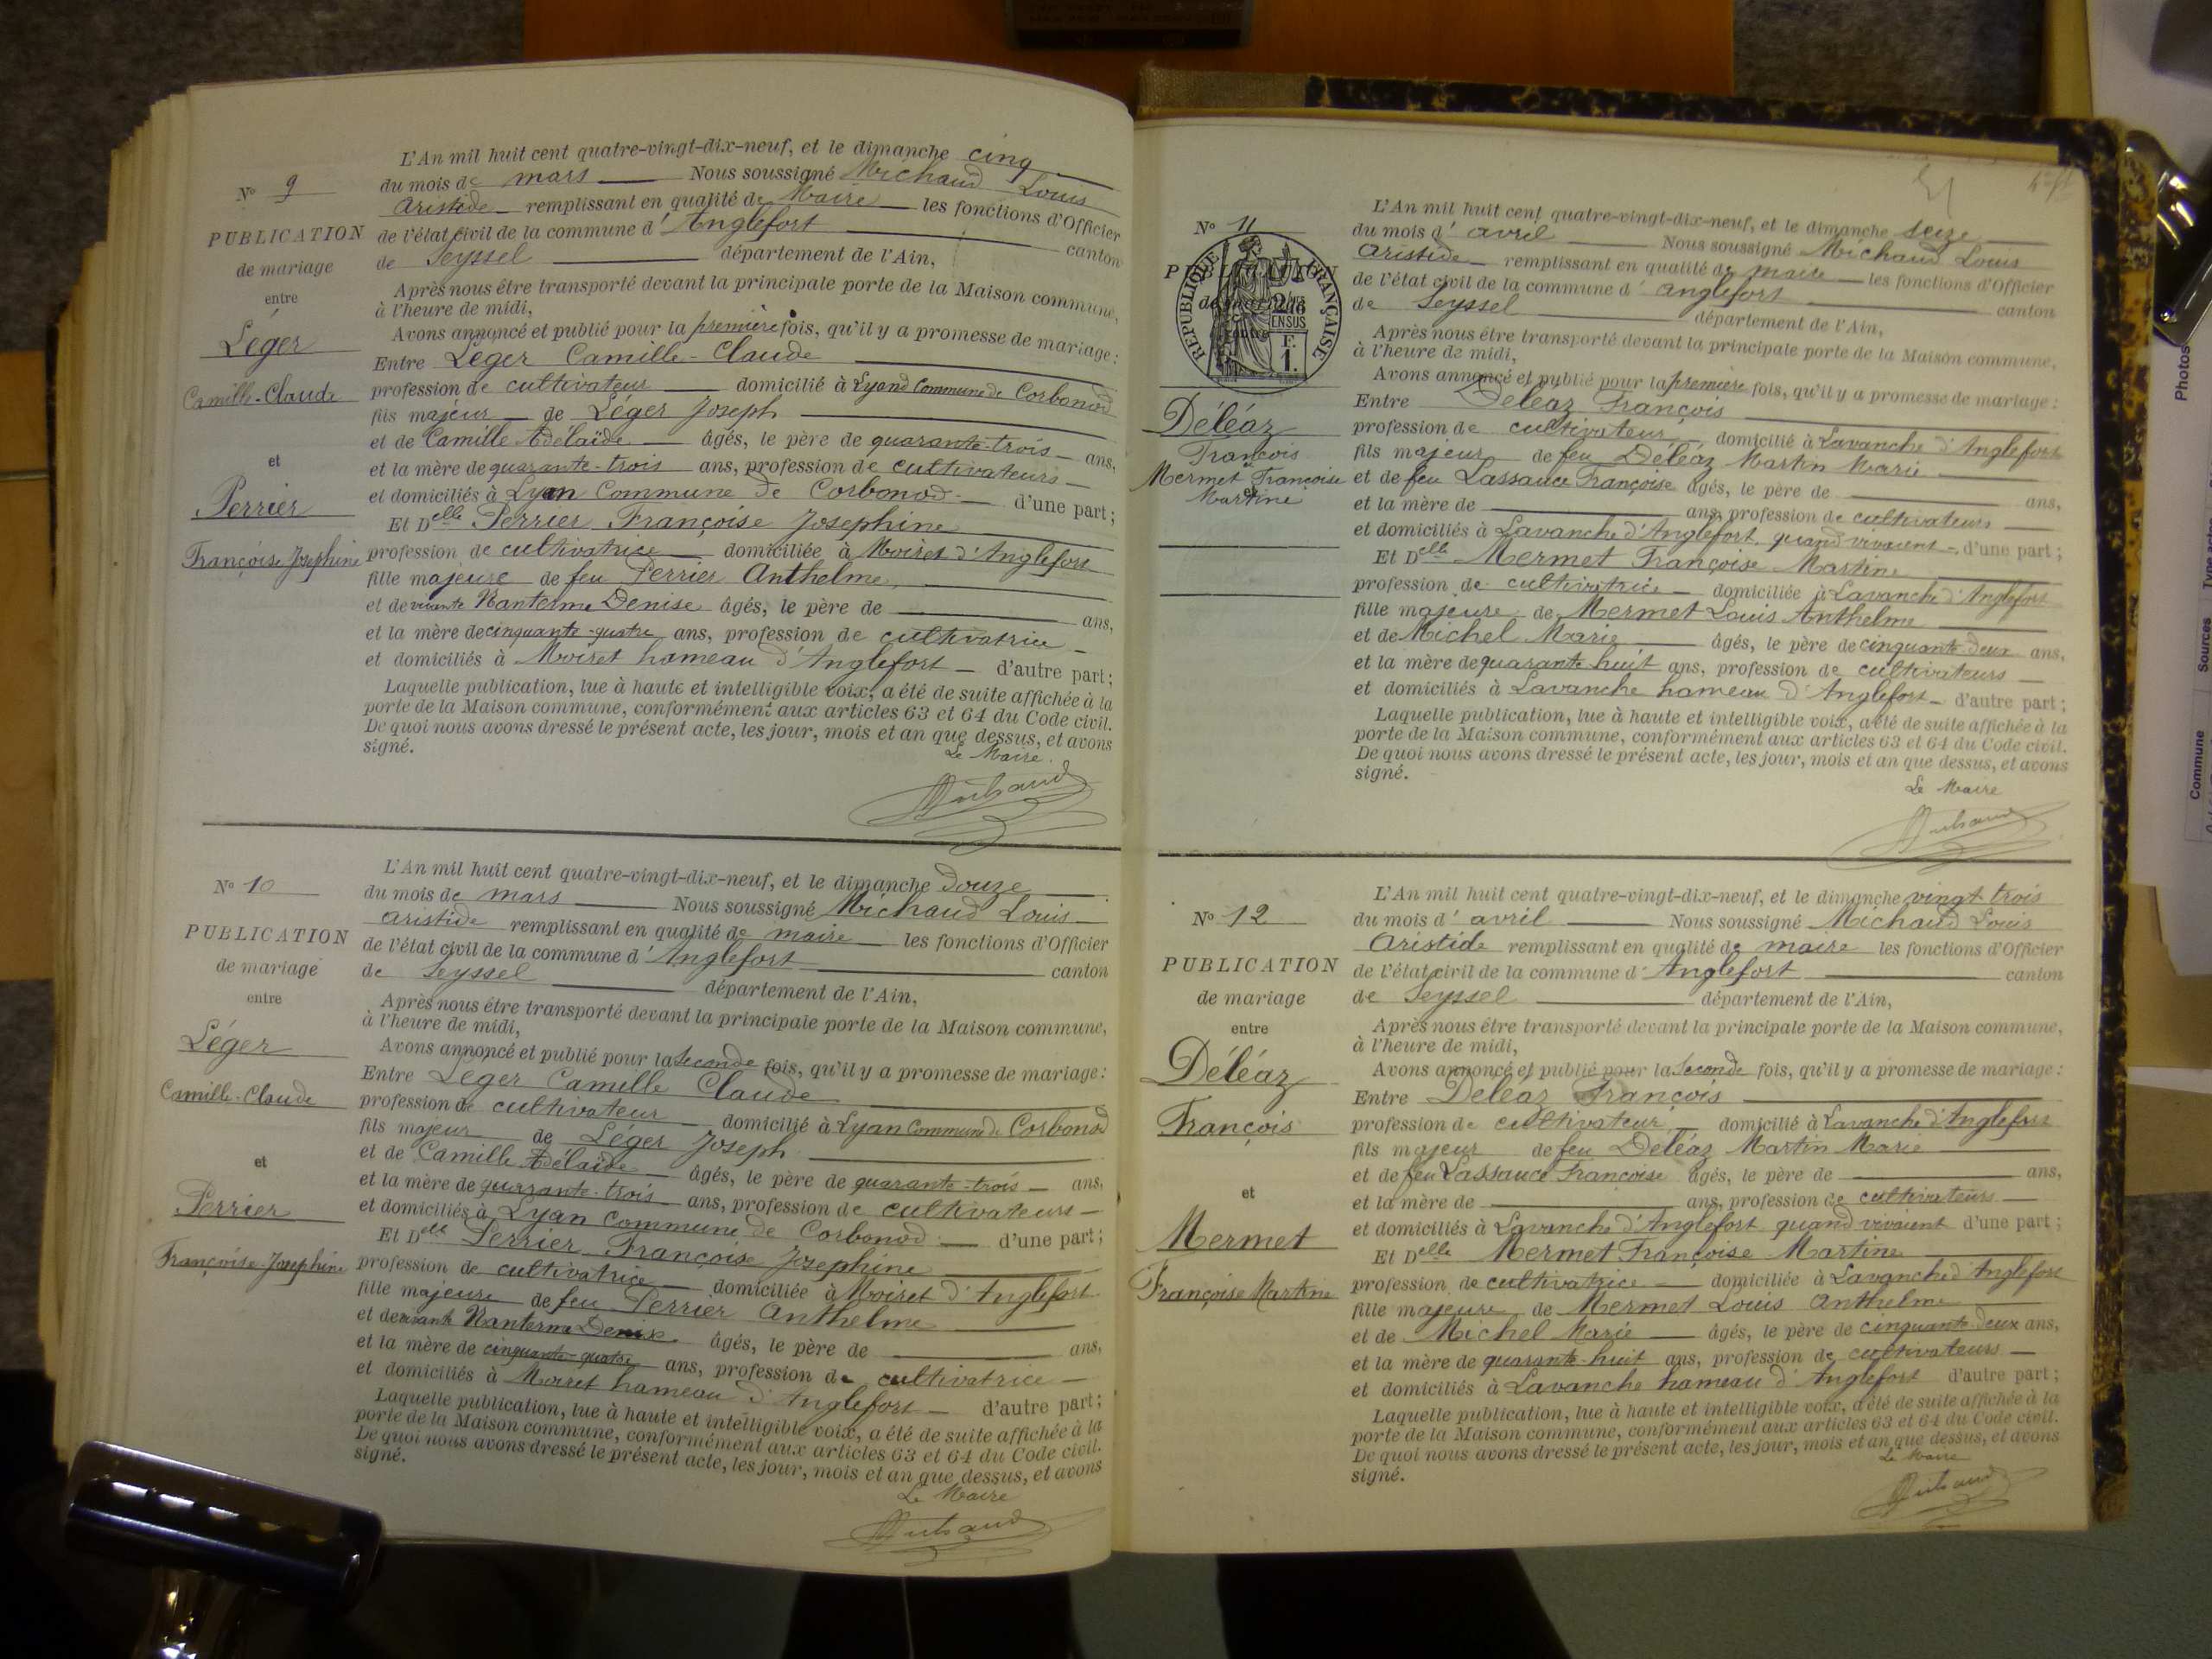 L'An mil huit cent quatre-vingt-dix-neuf, et le dimanche cinq
N° 9
du mois de mars Nous soussigné Michaud Louis
Aristide remplissant en qualité de Maire les fonctions d'Officier
PUBLICATION
de l'état civil de la commune d'Anglefort canton
de mariage
de Seyssel département de l'Ain,
entre
Après nous être transporté devant la principale porte de la Maison commune,
à l'heure de midi,
Léger
Avons annoncé et publié pour la première fois, qu'il y a promesse de mariage :
Entre Léger Camille-Claude
Camille-Claude
profession de cultivateur domicilié à Lyand Commune de Corbonod
fils majeur de Léger Joseph
et de Camille Adélaïde âgés, le père de quarante-trois ans,
et
et la mère de quarante-trois ans, profession de cultivateurs
et domiciliés à Lyan Commune de Corbonod d'une part ;
Perrier
Et Delle Perrier Françoise Josephine
Françoise Josephine
profession de cultivatrice domiciliée à Moiret d'Anglefort
fille majeure de feu Perrier Anthelme
et de vivante Nanterme Denise âgés, le père de ans,
et la mère de cinquante-quatre ans, profession de cultivatrice
et domiciliés à Moiret hameau d'Anglefort d'autre part ;
Laquelle publication, lue à haute et intelligible voix, a été de suite affichée à la
porte de la Maison commune, conformément aux articles 63 et 64 du Code civil.
De quoi nous avons dressé le présent acte, les jour, mois et an que dessus, et avons
signé.
Le Maire
Michaud
L'An mil huit cent quatre-vingt-dix-neuf, et le dimanche douze
N° 10
du mois de mars Nous soussigné Michaud Louis
Aristide remplissant en qualité de maire les fonctions d'Officier
PUBLICATION
de l'état civil de la commune d'Anglefort canton
de mariage
de Seyssel département de l'Ain,
entre
Après nous être transporté devant la principale porte de la Maison commune,
à l'heure de midi,
Léger
Avons annoncé et publié pour la seconde fois, qu'il y a promesse de mariage :
Entre Leger Camille Claude
Camille-Claude
profession de cultivateur domicilié à Lyan Commune de Corbonod
fils majeur de Léger Joseph
et de Camille Adélaïde âgés, le père de quarante-trois ans,
et
et la mère de quarante-trois ans, profession de cultivateurs
et domiciliés à Lyan Commune de Corbonod d'une part ;
Perrier
Et Delle Perrier Françoise Josephine
Françoise-Josephine
profession de cultivatrice domiciliée à Moiret d'Anglefort
fille majeure de feu Perrier Anthelme
et de vivante Nanterme Denise âgés, le père de ans,
et la mère de cinquante-quatre ans, profession de cultivatrice
et domiciliés à Moiret hameau d'Anglefort d'autre part ;
Laquelle publication, lue à haute et intelligible voix, a été de suite affichée à la
porte de la Maison commune, conformément aux articles 63 et 64 du Code civil.
De quoi nous avons dressé le présent acte, les jour, mois et an que dessus, et avons
signé.
Le Maire
Michaud
L'An mil huit cent quatre-vingt-dix-neuf, et le dimanche seize
N° 11
du mois d'avril Nous soussigné Michaud Louis
Aristide remplissant en qualité de maire les fonctions d'Officier
PUBLICATION
RÉPUBLIQUE FRANÇAISE
2/10 EN SUS
F. 1.
de l'état civil de la commune d'Anglefort canton
de mariage
de Seyssel département de l'Ain,
entre
Après nous être transporté devant la principale porte de la Maison commune,
à l'heure de midi,
Avons annoncé et publié pour la première fois, qu'il y a promesse de mariage :
Entre Deléaz François
Déléaz
profession de cultivateur domicilié à Lavanche d'Anglefort
François
fils majeur de feu Deléaz Martin Marie
et
Mermet Françoise
Martine
et de feu Lassauce Françoise âgés, le père de ans,
et la mère de ans, profession de cultivateurs
et domiciliés à Lavanche d'Anglefort quand vivaient d'une part ;
Et Delle Mermet Françoise Martine
profession de cultivatrice domiciliée à Lavanche d'Anglefort
fille majeure de Mermet Louis Anthelme
et de Michel Marie âgés, le père de cinquante-deux ans,
et la mère de quarante huit ans, profession de cultivateurs
et domiciliés à Lavanche hameau d'Anglefort d'autre part ;
Laquelle publication, lue à haute et intelligible voix, a été de suite affichée à la
porte de la Maison commune, conformément aux articles 63 et 64 du Code civil.
De quoi nous avons dressé le présent acte, les jour, mois et an que dessus, et avons
signé.
Le Maire
Michaud
L'An mil huit cent quatre-vingt-dix-neuf, et le dimanche vingt trois
N° 12
du mois d'avril Nous soussigné Michaud Louis
Aristide remplissant en qualité de maire les fonctions d'Officier
PUBLICATION
de l'état civil de la commune d'Anglefort canton
de mariage
de Seyssel département de l'Ain,
entre
Après nous être transporté devant la principale porte de la Maison commune,
à l'heure de midi,
Déléaz
Avons annoncé et publié pour la seconde fois, qu'il y a promesse de mariage :
Entre Deléaz François
François
profession de cultivateur domicilié à Lavanche d'Anglefort
fils majeur de feu Deléaz Martin Marie
et de feu Lassauce Françoise âgés, le père de ans,
et
et la mère de ans, profession de cultivateurs
et domiciliés à Lavanche d'Anglefort quand vivaient d'une part ;
Mermet
Et Delle Mermet Françoise Martine
Françoise Martine
profession de cultivatrice domiciliée à Lavanche d'Anglefort
fille majeure de Mermet Louis Anthelme
et de Michel Marie âgés, le père de cinquante deux ans,
et la mère de quarante-huit ans, profession de cultivateurs
et domiciliés à Lavanche hameau d'Anglefort d'autre part ;
Laquelle publication, lue à haute et intelligible voix, a été de suite affichée à la
porte de la Maison commune, conformément aux articles 63 et 64 du Code civil.
De quoi nous avons dressé le présent acte, les jour, mois et an que dessus, et avons
signé.
Le Maire
Michaud
Photos
Type actes
Sources
Commune